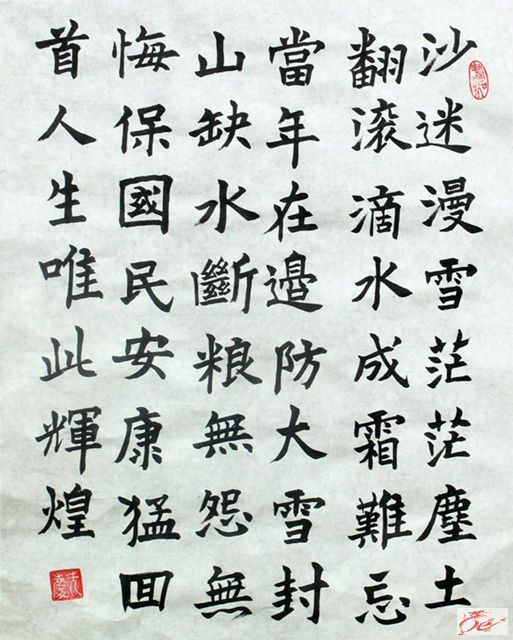 沙迷漫雪茫茫塵土
翻滚滴水成霜難忘
當年在邉防大雪封
山缺水斷粮無怨無
悔保國民安康猛回
首人生唯此輝煌